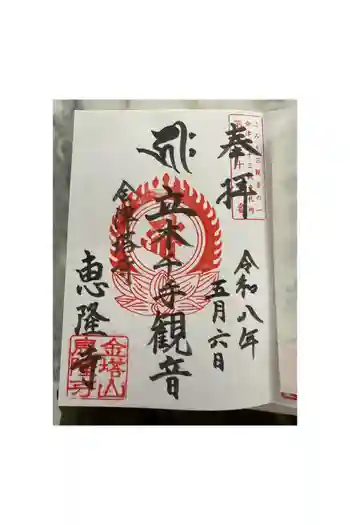 奉拝
令和八年
五月六日
立木千手観音
会津塔寺
恵隆寺
金塔山
恵隆寺